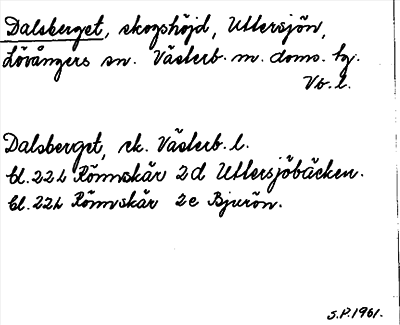 Dalsberget, skogshöjd, Uttersjön,
Lövångers sn. Västerb. m. doms. hg.
Vb. l.
Dalsberget, sk. Västerb. l.
bl. 22L Rönnskär 2d Uttersjöbäcken.
bl. 22L Rönnskär 2e Bjurön.
S.P. 1961.